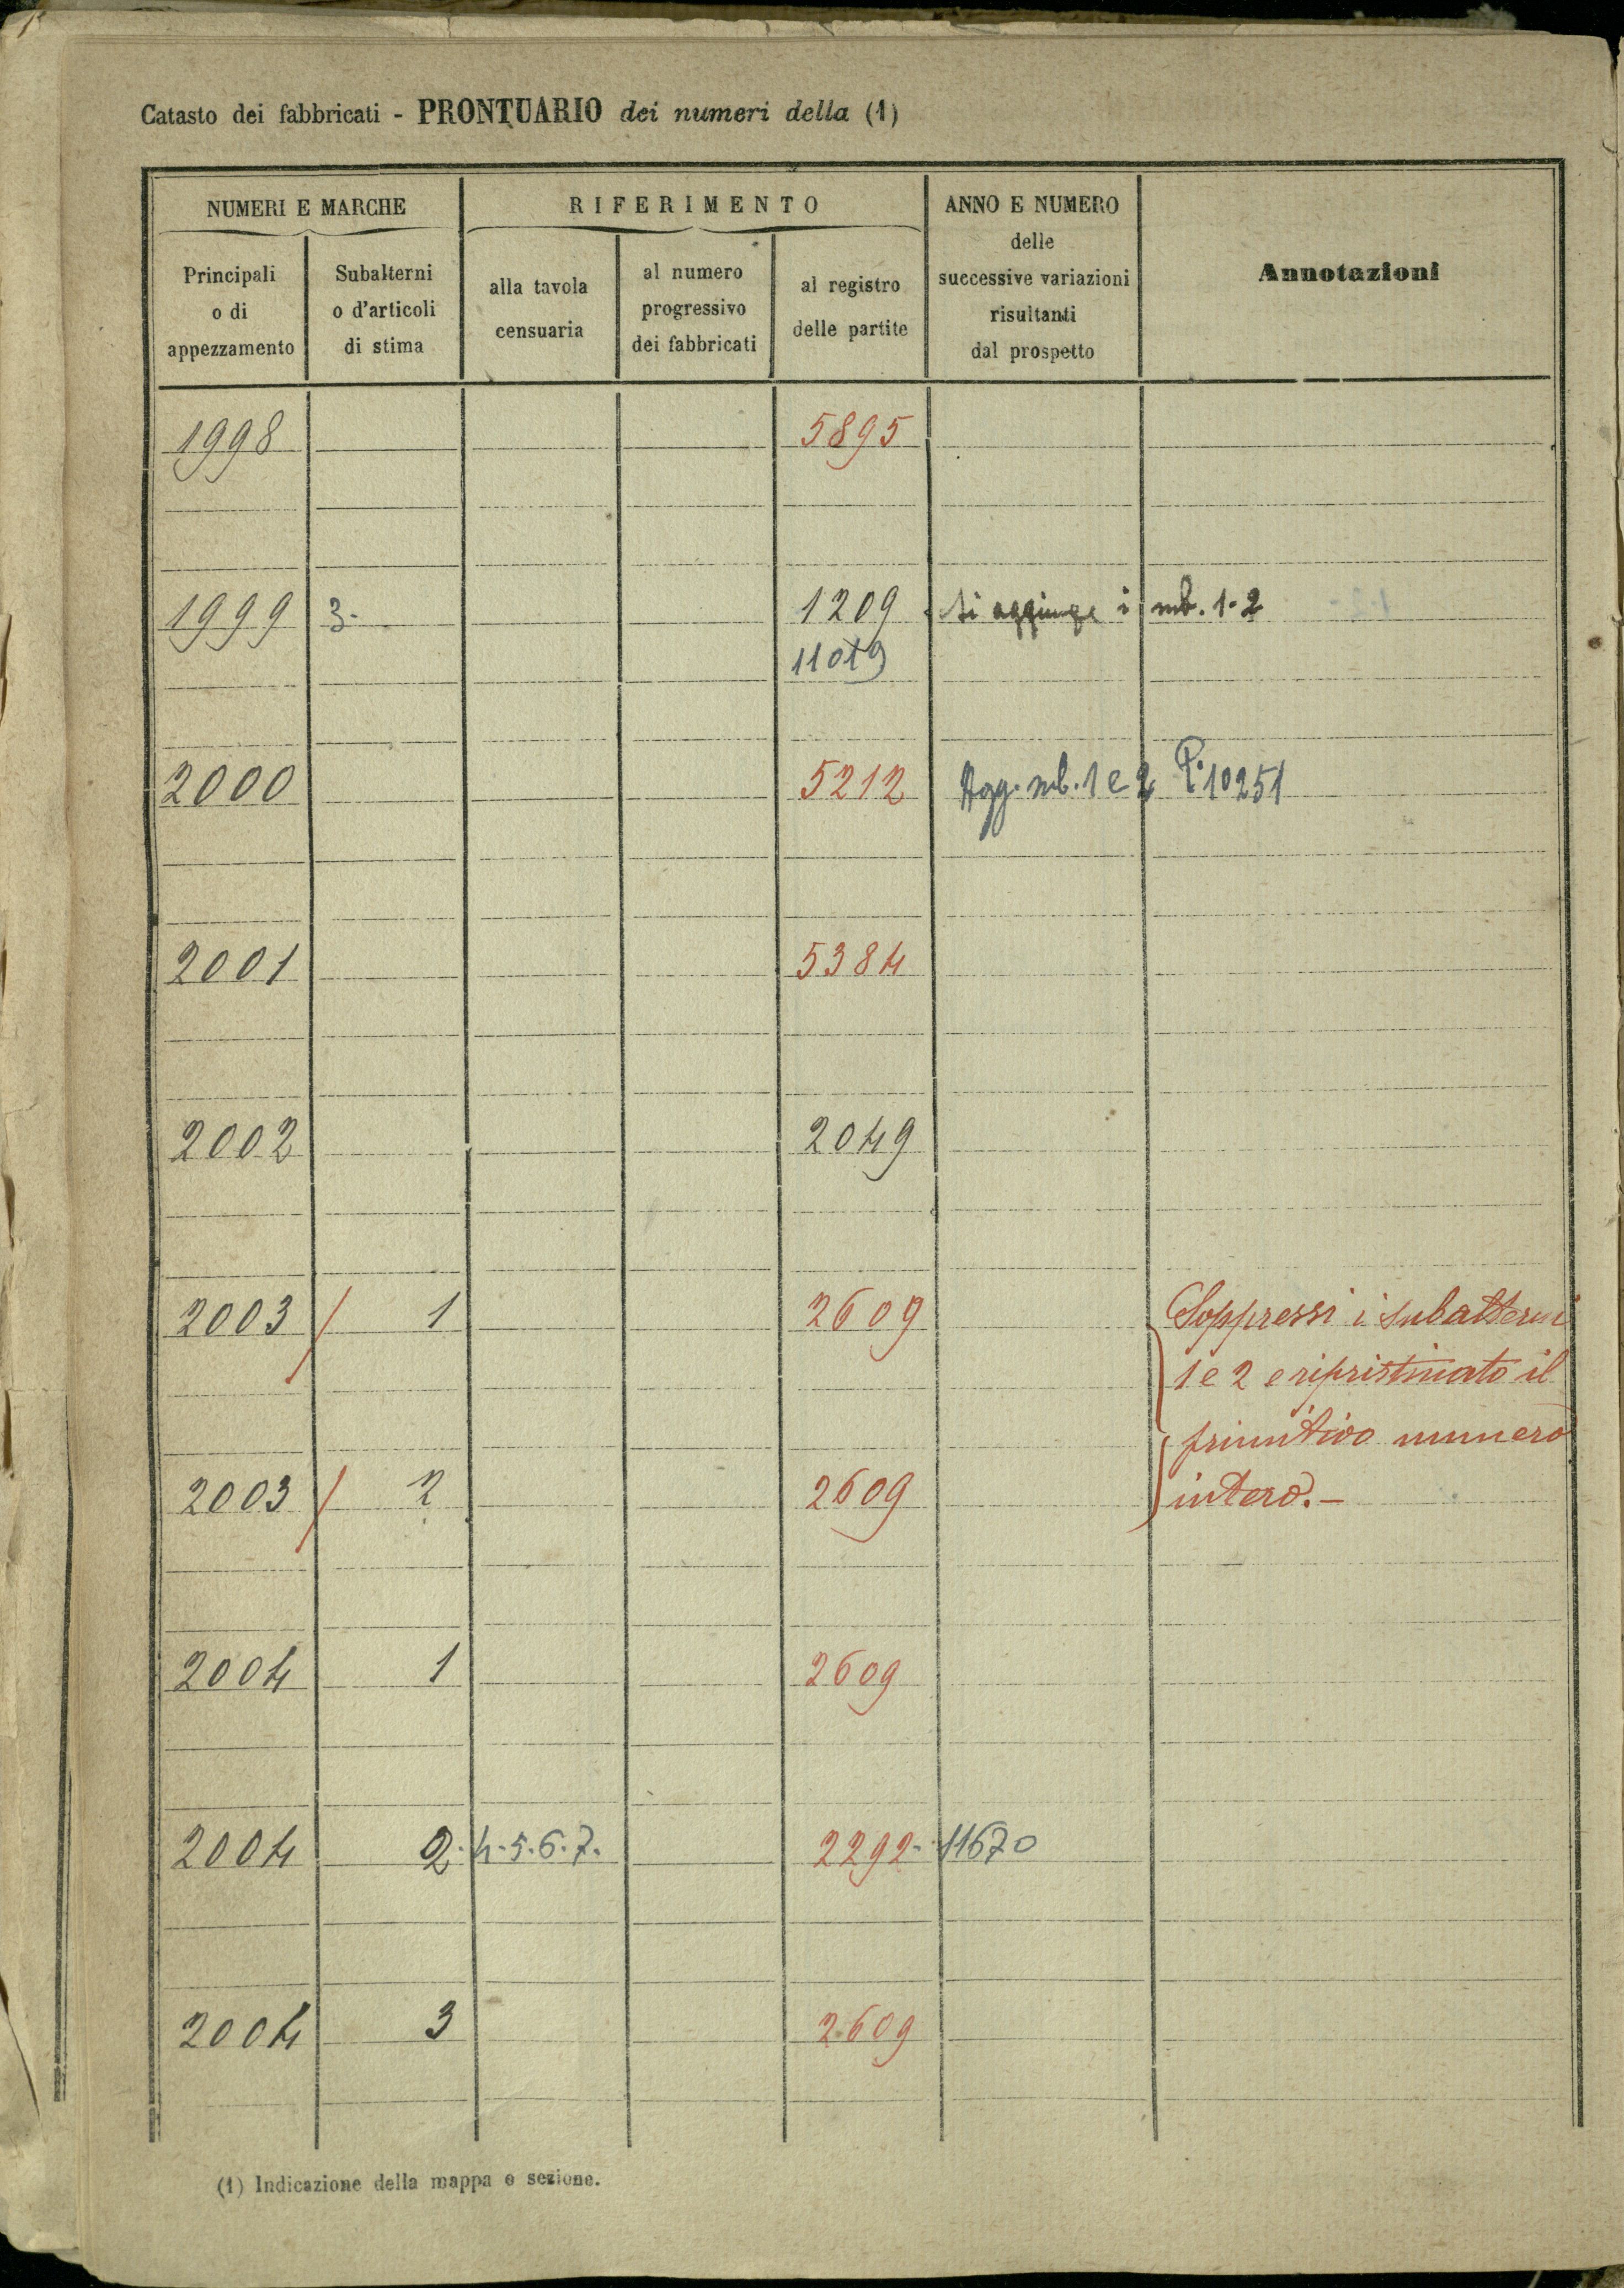 Catasto dei fabbricati - PRONTUARIO dei numeri della (1)
NUMERI E MARCHE
RIFERIMENTO
ANNO E NUMERO
delle
successive variazioni
risultanti
dal prospetto
Annotazioni
Principali
o di
appezzamento
Subalterni
o d'articoli
di stima
alla tavola
censuaria
al numero
progressivo
dei fabbricati
al registro
delle partite
1998 5895
1999 3- 1209 si aggiunge i sub. 1-2
11019
2000 5212 Agg. sub. 1 e 2 P. 10251
2001 5384
2002 2049
2003 / 1 2609 Soppressi i subalterni
1 e 2 e ripristinato il
primitivo numero
2003 / 2 2609 intero.-
2004 1 2609
2004 2.4.5.6.7. 2292- 11670
2004 3 2609
(1) Indicazione della mappa e sezione.